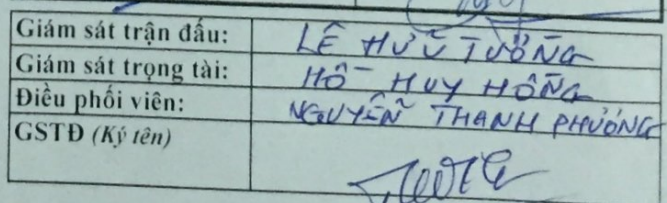 Giám sát trận đấu: LÊ HỮU TƯỜNG
Giám sát trọng tài: HỒ HUY HỒNG
Điều phối viên: NGUYỄN THANH PHƯƠNG
GSTĐ (Ký tên)